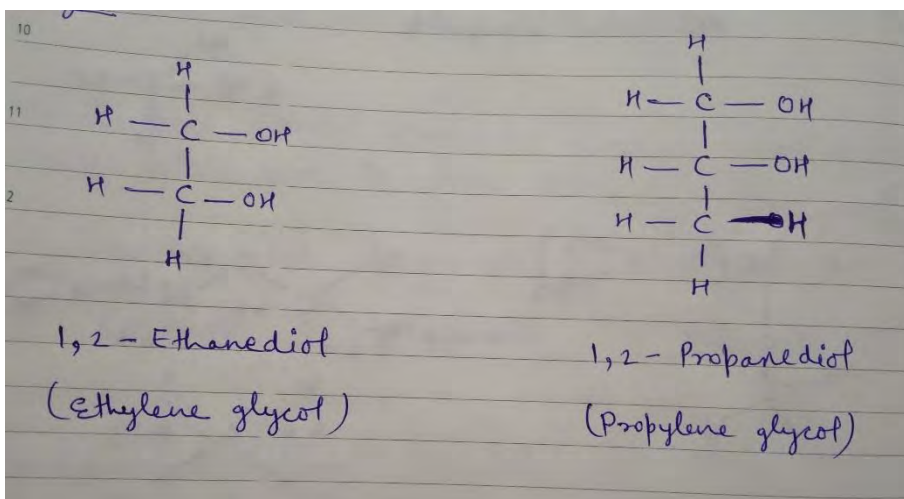 10
H
H — C — OH
11
H — C — OH
2
H
1,2 - Ethanediol
(Ethylene glycol)
H
H — C — OH
H — C — OH
H — C — H
H
1,2 - Propanediol
(Propylene glycol)